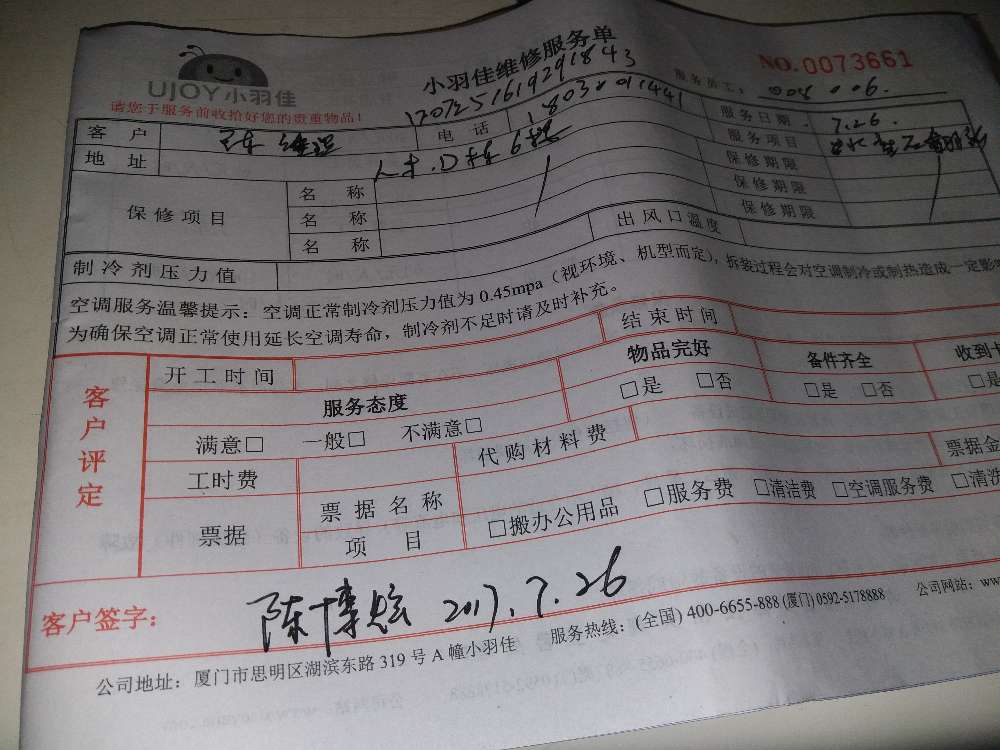 UJOY小羽佳
小羽佳维修服务单
NO.0073661
请您于服务前收拾好您的贵重物品!
1207251619291843
服务员工: 008 006.
客户
电话 18030091441
服务日期 7.26.
地址 人才.D栋6楼
服务项目
保修项目
名称 保修期限
名称 保修期限
名称 保修期限
制冷剂压力值 出风口温度
空调服务温馨提示:空调正常制冷剂压力值为0.45mpa(视环境、机型而定),拆装过程会对空调制冷或制热造成一定影
为确保空调正常使用延长空调寿命,制冷剂不足时请及时补充。
客户评定
开工时间 结束时间
服务态度 物品完好 备件齐全 收到
满意□ 一般□ 不满意□ □是 □否 □是 □否 □是
工时费 代购材料费
票据 票据名称 票据金
项目 □搬办公用品 □服务费 □清洁费 □空调服务费 □清洗
客户签字: 陈博炫 2017.7.26
公司地址:厦门市思明区湖滨东路319号A幢小羽佳 服务热线:(全国) 400-6655-888 (厦门) 0592-5178888 公司网站:ww